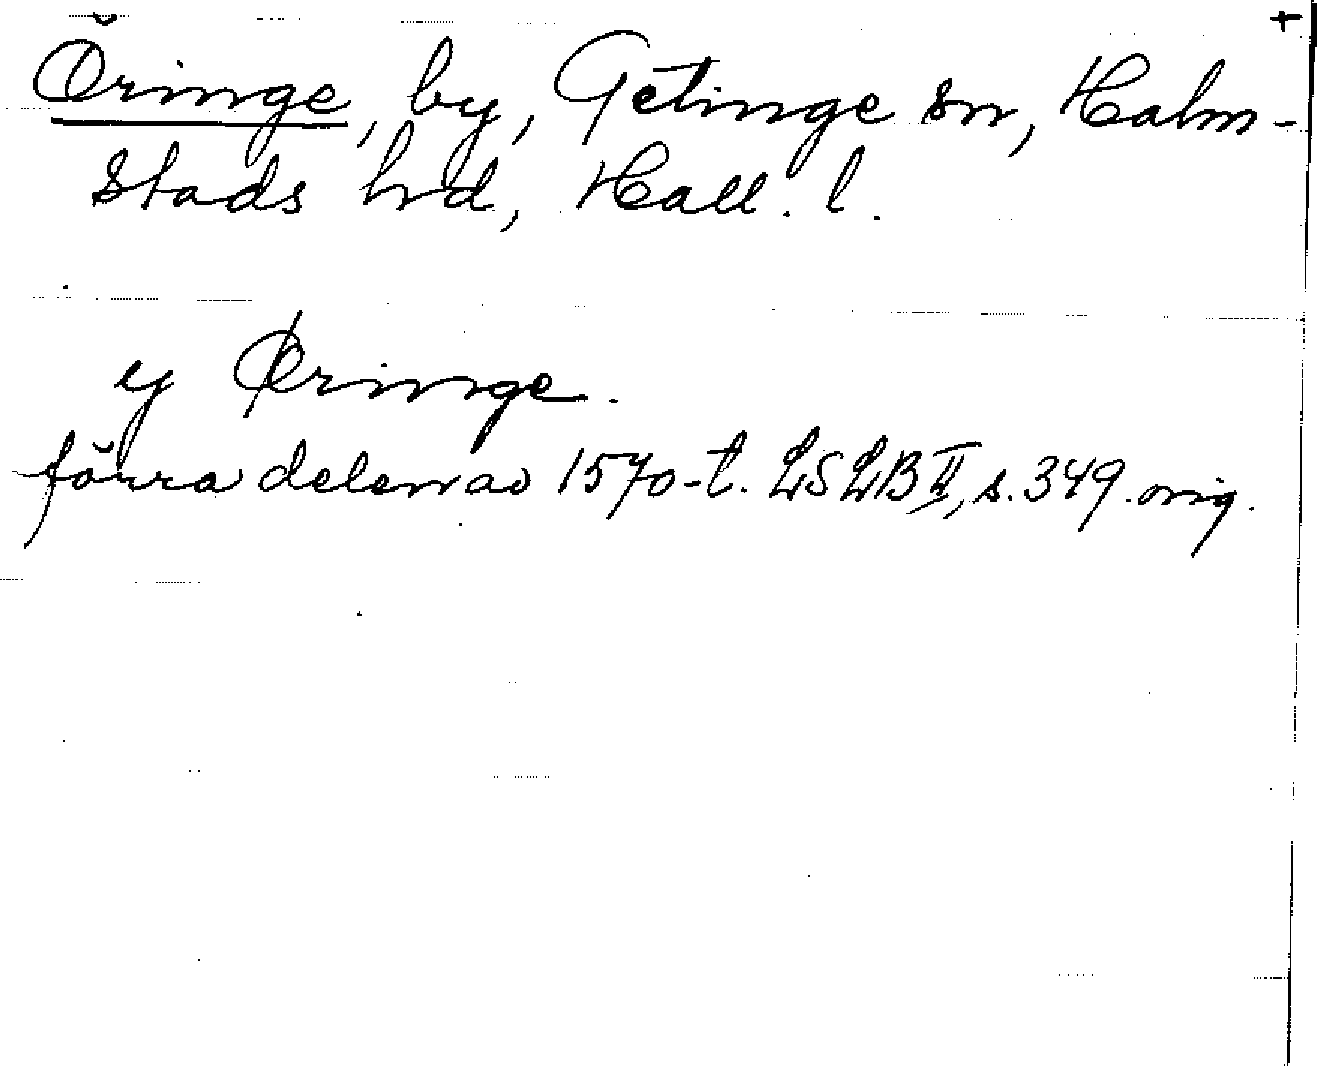 +
Öringe, by, Getinge sn, Halm-
stads hd, Hall. l.
y Øringe.
förra delen av 1570-t. LSLB II, s. 349. orig.